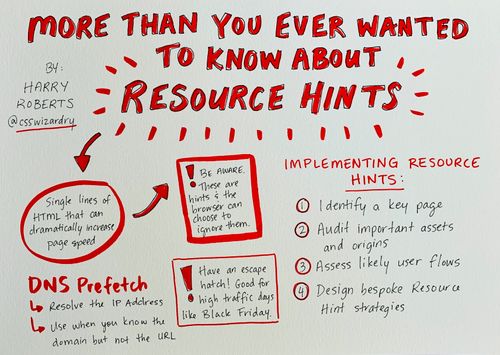 MORE THAN YOU EVER WANTED
TO KNOW ABOUT
RESOURCE HINTS
BY:
HARRY
ROBERTS
@csswizardry
Single lines of
HTML that can
dramatically increase
page speed
! BE AWARE.
These are
hints & the
browser can
choose to
ignore them.
DNS Prefetch
↳ Resolve the IP Address
↳ Use when you know the
domain but not the URL
! Have an escape
hatch! Good for
high traffic days
like Black Friday.
IMPLEMENTING RESOURCE
HINTS:
1 Identify a key page
2 Audit important assets
and origins
3 Assess likely user flows
4 Design bespoke Resource
Hint strategies